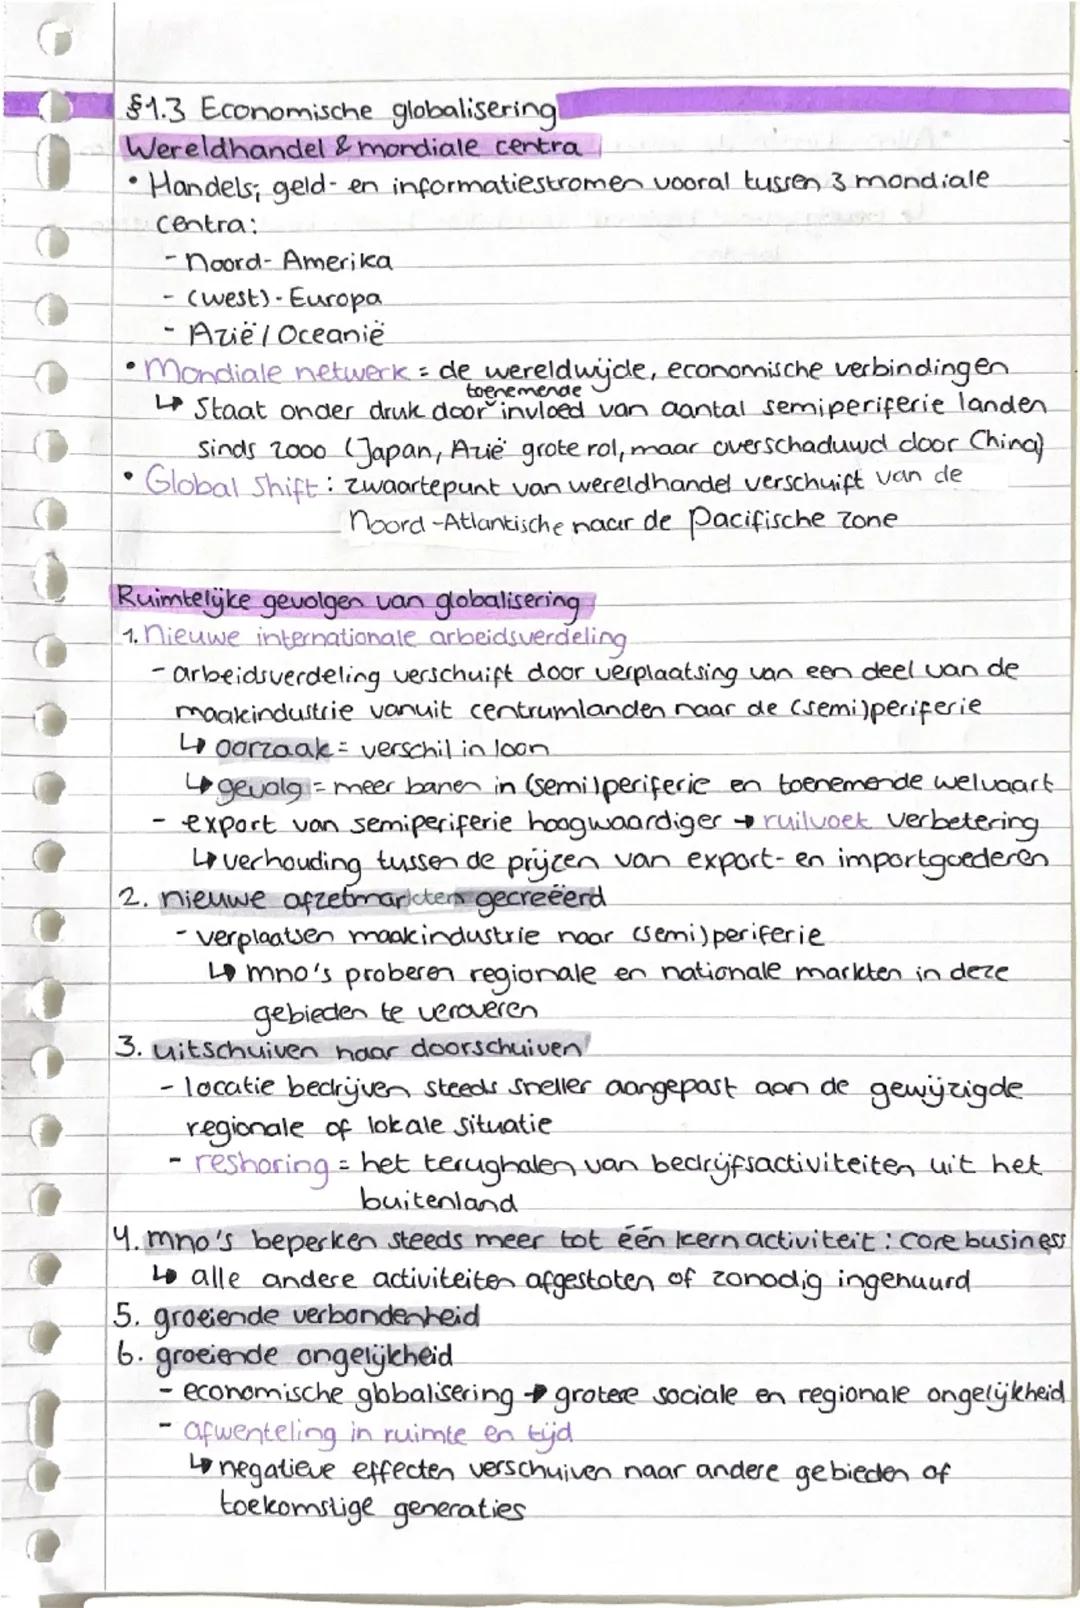 §1.3 Economische globalisering
Wereldhandel & mondiale centra
• Handels-, geld- en informatiestromen vooral tussen 3 mondiale
centra:
- Noord-Amerika
- (west)-Europa
- Azië / Oceanië
• Mondiale netwerk = de wereldwijde, economische verbindingen
toenemende
↳ Staat onder druk door invloed van aantal semiperiferie landen
sinds 2000 (Japan, Azië grote rol, maar overschaduwd door China)
• Global Shift: zwaartepunt van wereldhandel verschuift van de
Noord-Atlantische naar de Pacifische zone
Ruimtelijke gevolgen van globalisering
1. Nieuwe internationale arbeidsverdeling
- arbeidsverdeling verschuift door verplaatsing van een deel van de
maakindustrie vanuit centrumlanden naar de (semi)periferie
↳ oorzaak = verschil in loon
↳ gevolg = meer banen in (semi)periferie en toenemende welvaart
- export van semiperiferie hoogwaardiger → ruilvoet verbetering
↳ verhouding tussen de prijzen van export- en importgoederen
2. nieuwe afzetmarkten gecreëerd
- verplaatsen maakindustrie naar (semi)periferie
↳ mno's proberen regionale en nationale markten in deze
gebieden te veroveren
3. uitschuiven naar doorschuiven
- locatie bedrijven steeds sneller aangepast aan de gewijzigde
regionale of lokale situatie
- reshoring = het terughalen van bedrijfsactiviteiten uit het
buitenland
4. mno's beperken steeds meer tot één kernactiviteit: core business
↳ alle andere activiteiten afgestoten of zonodig ingehuurd
5. groeiende verbondenheid
6. groeiende ongelijkheid
- economische globalisering → grotere sociale en regionale ongelijkheid
- afwenteling in ruimte en tijd
↳ negatieve effecten verschuiven naar andere gebieden of
toekomstige generaties